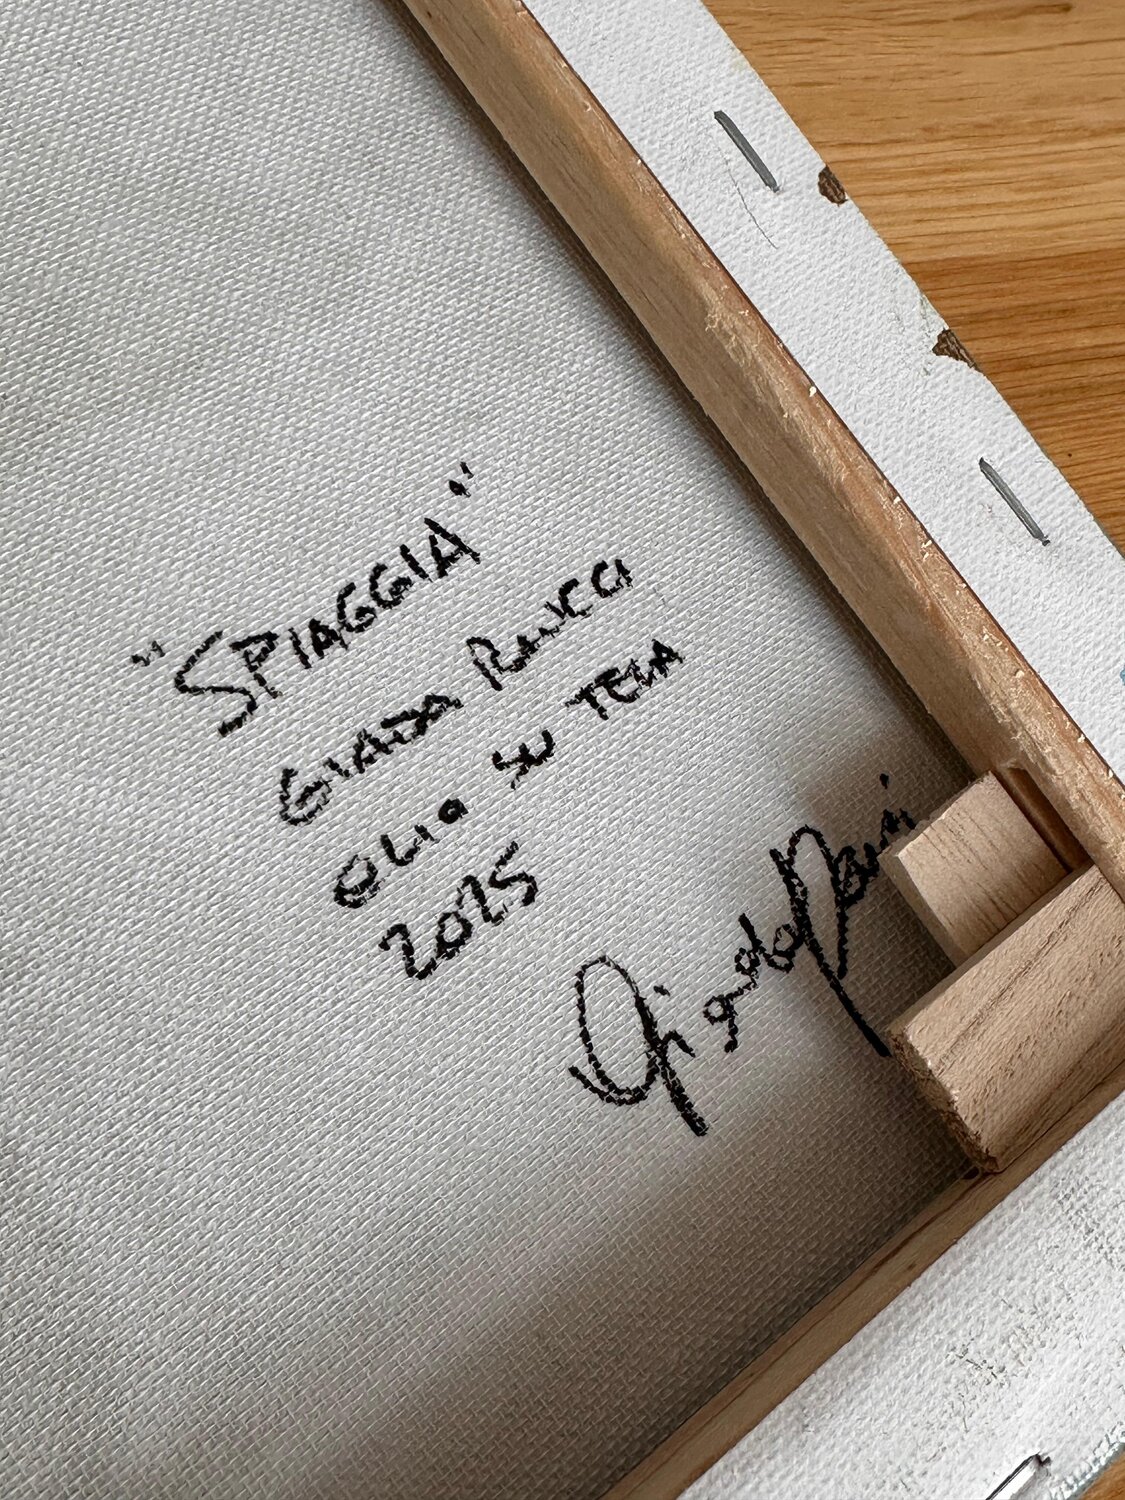 "SPIAGGIA"
GIADA RAUCCI
OLIO SU TELA
2025
Giada